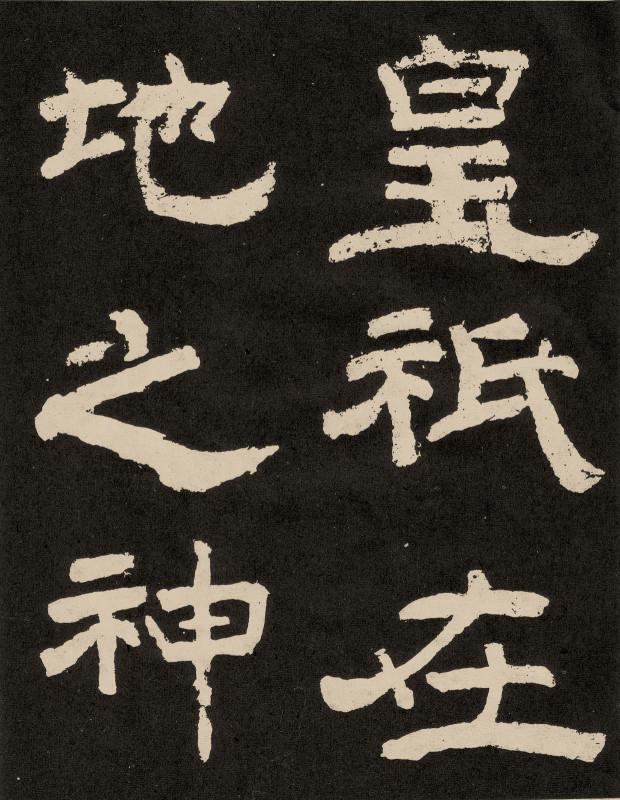 皇祇在
地之神